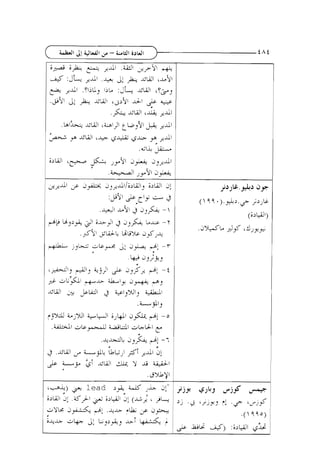 ٤٨٤
العادة الثامنة – من الفعالية إلى العظمة
يلهم الآخرين الثقة. المدير يتمتع بنظرة قصيرة
الأمد، القائد ينظر إلى بعيد. المدير يسأل: كيف
ومتى؟، القائد يسأل: ماذا ولماذا؟. المدير يضع
عينيه على الحد الأدنى، القائد ينظر إلى الأفق.
المدير يقلد، القائد يبتكر.
المدير يقبل الأوضاع الراهنة، القائد يتحداها.
المدير هو جندي تقليدي جيد، القائد هو شخص
مستقل بذاته.
المديرون يفعلون الأمور بشكل صحيح، القادة
يفعلون الأمور الصحيحة.
جون دبليو. غاردنر
غاردنر جي. دبليو. (١٩٩٠)
(القيادة)
نيويورك، كولير ماكميلان.
إن القادة والقادة/المديرون يختلفون عن المديرين
في ست نواح على الأقل:
١- يفكرون في الأمد البعيد.
٢- عندما يفكرون في الوحدة التي يقودونها فإنهم
يدركون علاقاتها بالحقائق الأكبر.
٣- إنهم يصلون إلى مجموعات تتجاوز سلطتهم
ويؤثرون فيها.
٤- إنهم يركزون على الرؤية والقيم والتحفيز،
وهم يفهمون بواسطة حدسهم المكونات غير
المنطقية واللاواعية في التفاعل بين القائد
والمؤسسة.
٥- إنهم يملكون المهارة السياسية اللازمة للتلاؤم
مع الحاجات المتناقضة للمجموعات المختلفة.
٦- إنهم يفكرون بالتجديد.
إن المدير أكثر ارتباطاً بالمؤسسة من القائد. في
الحقيقة قد لا يملك القائد أي مؤسسة على
الإطلاق.
جيمس كوزس وباري بوزنر
كوزس، جي. إم وبوزنر، ي. زد
(١٩٩٥).
تحدّي القيادة: (كيف تحافظ على
إن جذر كلمة يقود lead يعني (يذهب،
يسافر، يُرشد) إن القيادة تعني الحركة. إن القادة
يبحثون عن نظام جديد. إنهم يكتشفون مجالات
لم يكتشفها أحد ويقودوننا إلى جهات جديدة